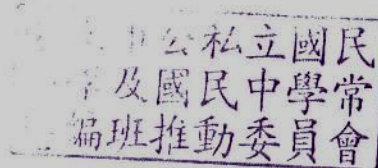 公私立國民
及國民中學常
編班推動委員會